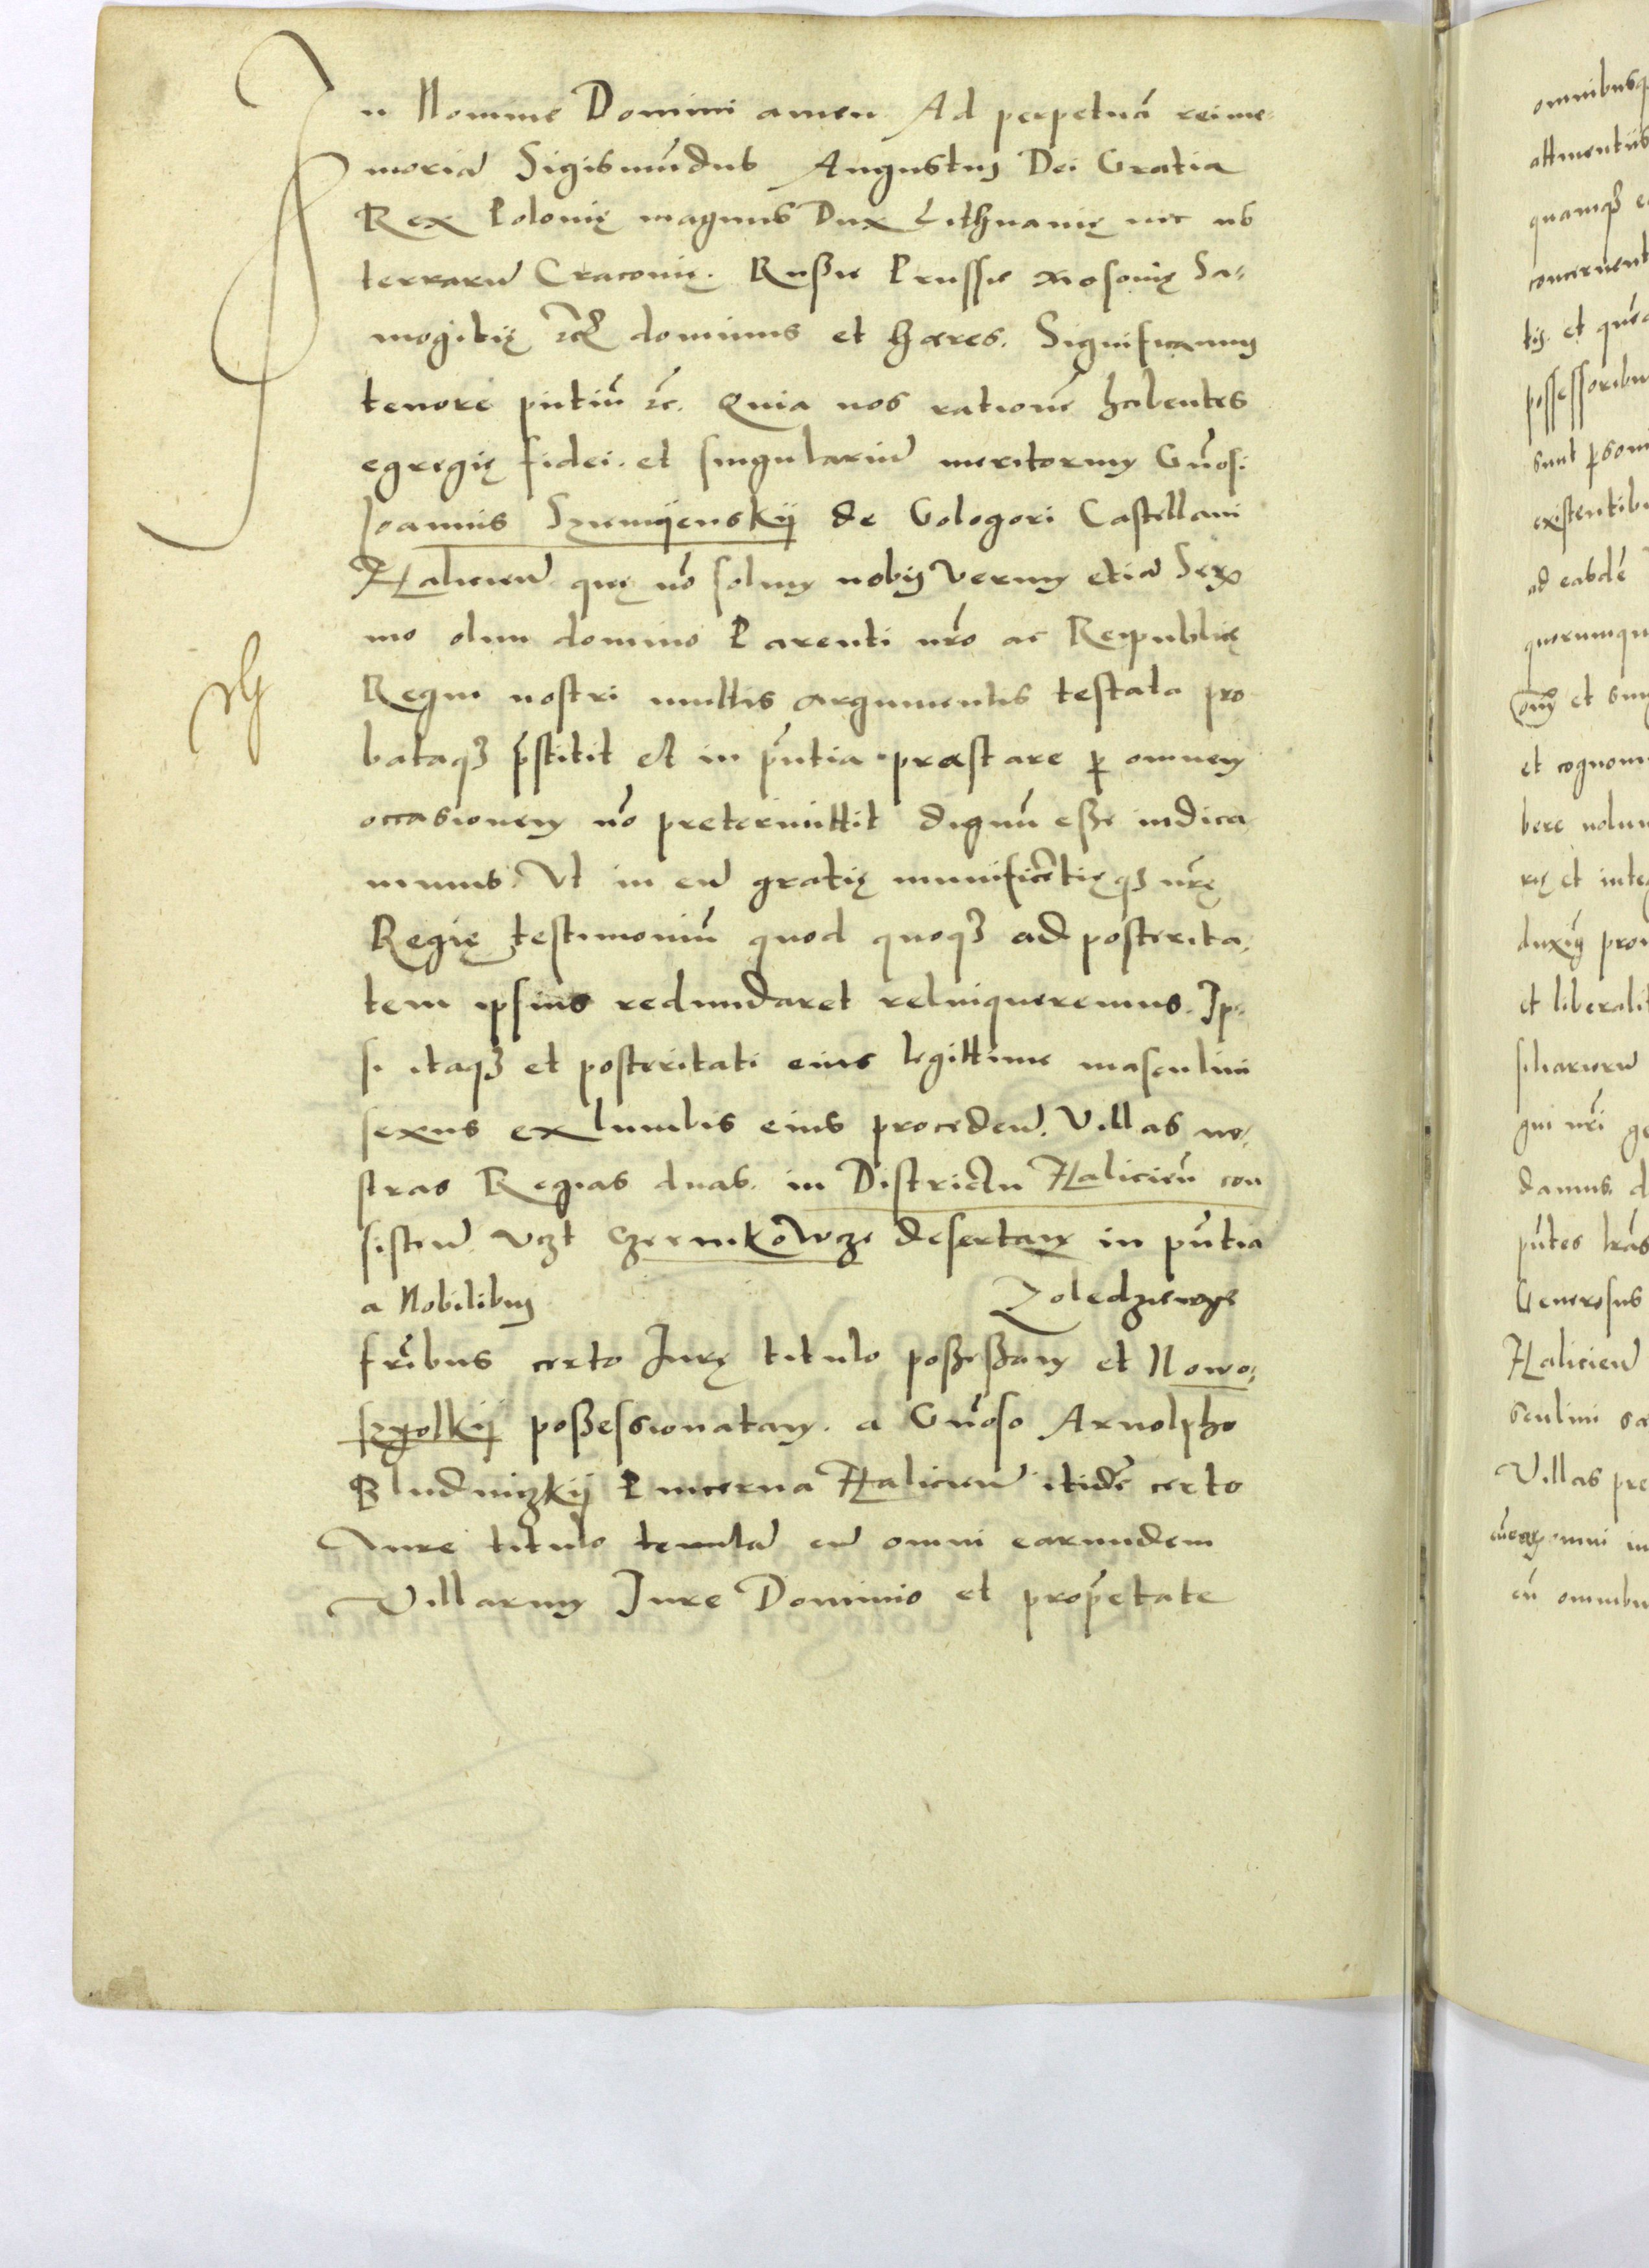 In Nomine Domini amen Ad perpetuā rei me-
moriā Sigismūdus Augustus Dei Gratia
Rex Polonię magnus Dux Lithuanię nec nō
terrarū Cracovię. Russie Prussie Mosovię Sa-
mogitię ꝛcꝫ dominus et hæres. Significamus
tenore pn̄tiū ꝛc. Quia nos rationē habentes
egregię fidei. et singulariū meritorum Gn̄osi
Joannis Szumyenskij de Gologori Castellani
Halicien̄ quę nō solum nobis verum etiā Serᵒ
mo olim domino Parenti nr̄o ac Reipublicę
Regni nostri multis argumentis testata pro
bataqꝫ p̄stitit et in p̄ntia præstare ꝑ omnem
occasionem nō pretermittit dignū esse iudica
uimus. Vt in eū gratię munificētięqꝫ nr̄ę
Regię testimoniū quod quoqꝫ ad posterita-
tem ipsius redundaret relinqueremus. Ip-
si itaqꝫ et posteritati eius legittime masculini
sexus ex lumbis eius proceden̄. Villas no-
stras Regias duas. in Districtu Halicien̄ con
sisten̄ vczt Czernikowcze desertam in pn̄tia
a Nobilibus Zoledzewye
fr̄ibus certo Jurę titulo possessam et Nowo-
szyolkij possessionatam. a Gn̄oso Arnolpho
Bludniczkij Pincerna Halicien̄ itidē certo
Jure titulo tentā cū omni earundem
Villarum Jure Dominio et proprietate
omnibusqꝫ
attinentiis
concernent
tijs. et
possessoribu
sunt ꝑson
existentibu
ad easdē
quorumqu
om̄ et sin
et cognom
bere volu
rię et inte
et liberali
gni nr̄i ge
damus. d
pn̄tes lr̄as
Generosus
Halicien̄
sculini sa
Villas pre
omni iu
cū omnibu